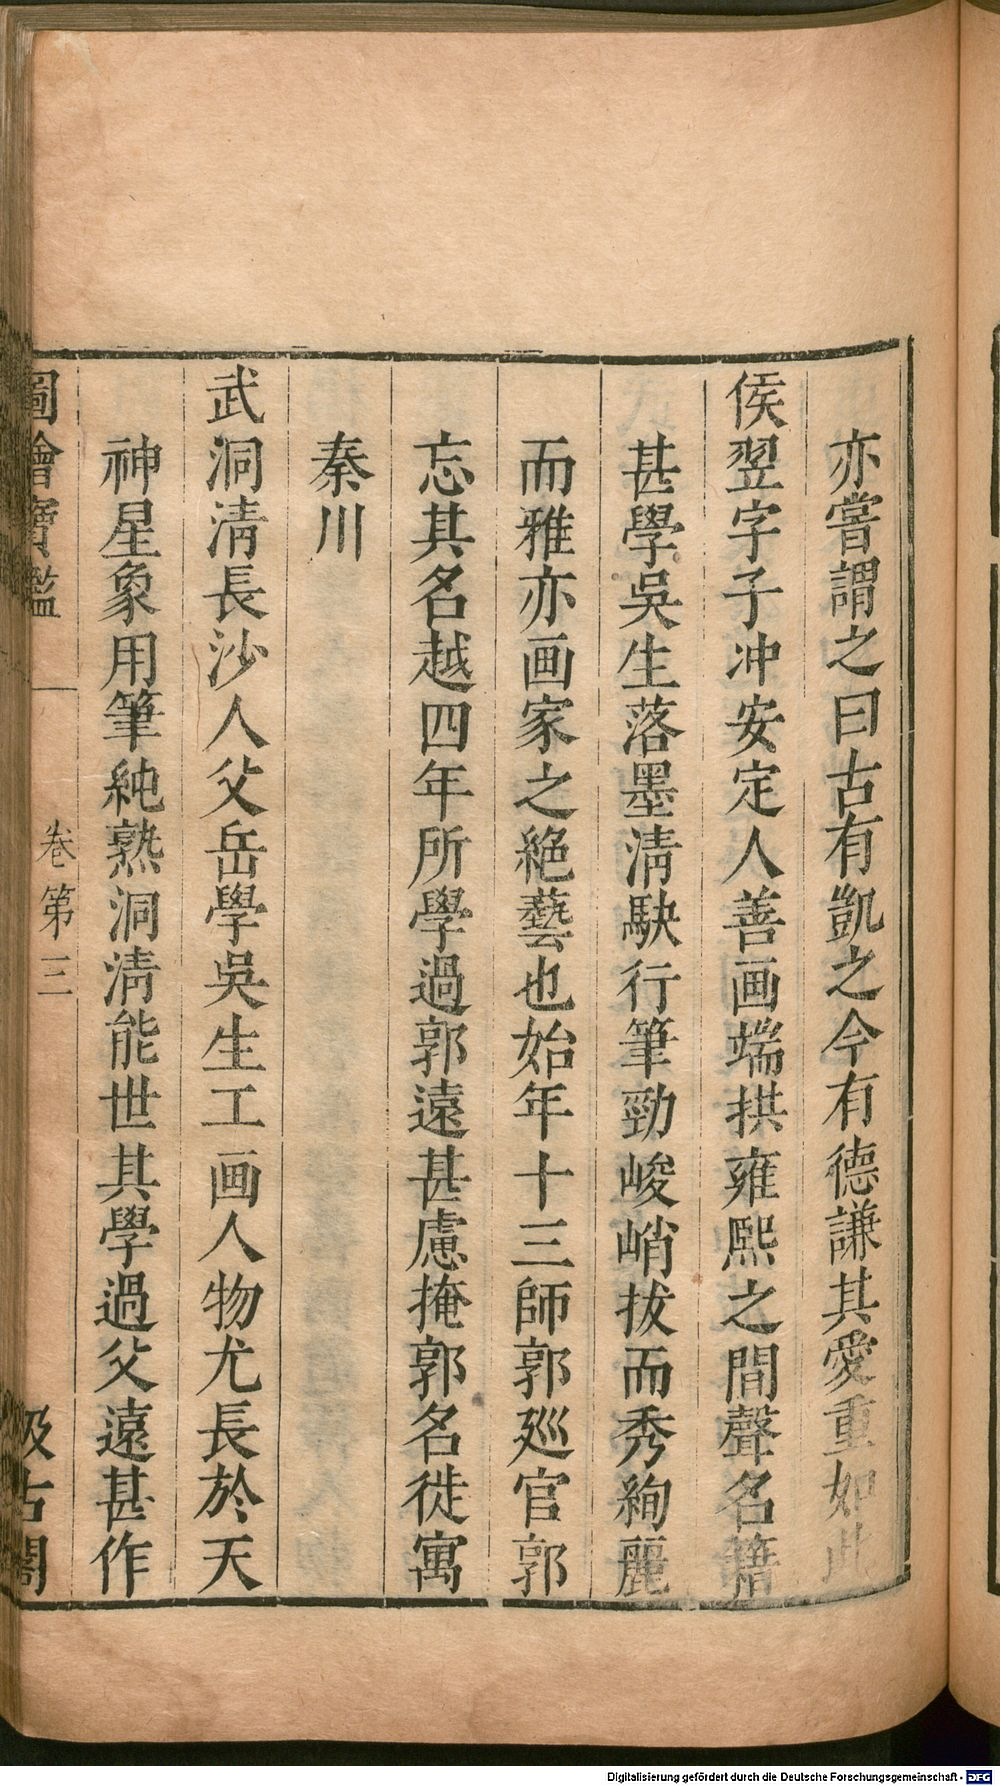 亦嘗謂之曰古有凱之今有德謙其愛重如此
侯翌字子冲安定人善画端拱雍熙之間聲名籍
甚學吳生落墨清駃行筆勁峻峭拔而秀絢麗
而雅亦画家之絕藝也始年十三師郭廵官郭
忘其名越四年所學過郭遠甚慮掩郭名徙寓
秦川
武洞清長沙人父岳學吳生工画人物尤長於天
神星象用筆純熟洞清能世其學過父遠甚作
圖繪寶鑑 卷第三 汲古閣
Digitalisierung gefördert durch die Deutsche Forschungsgemeinschaft - DFG